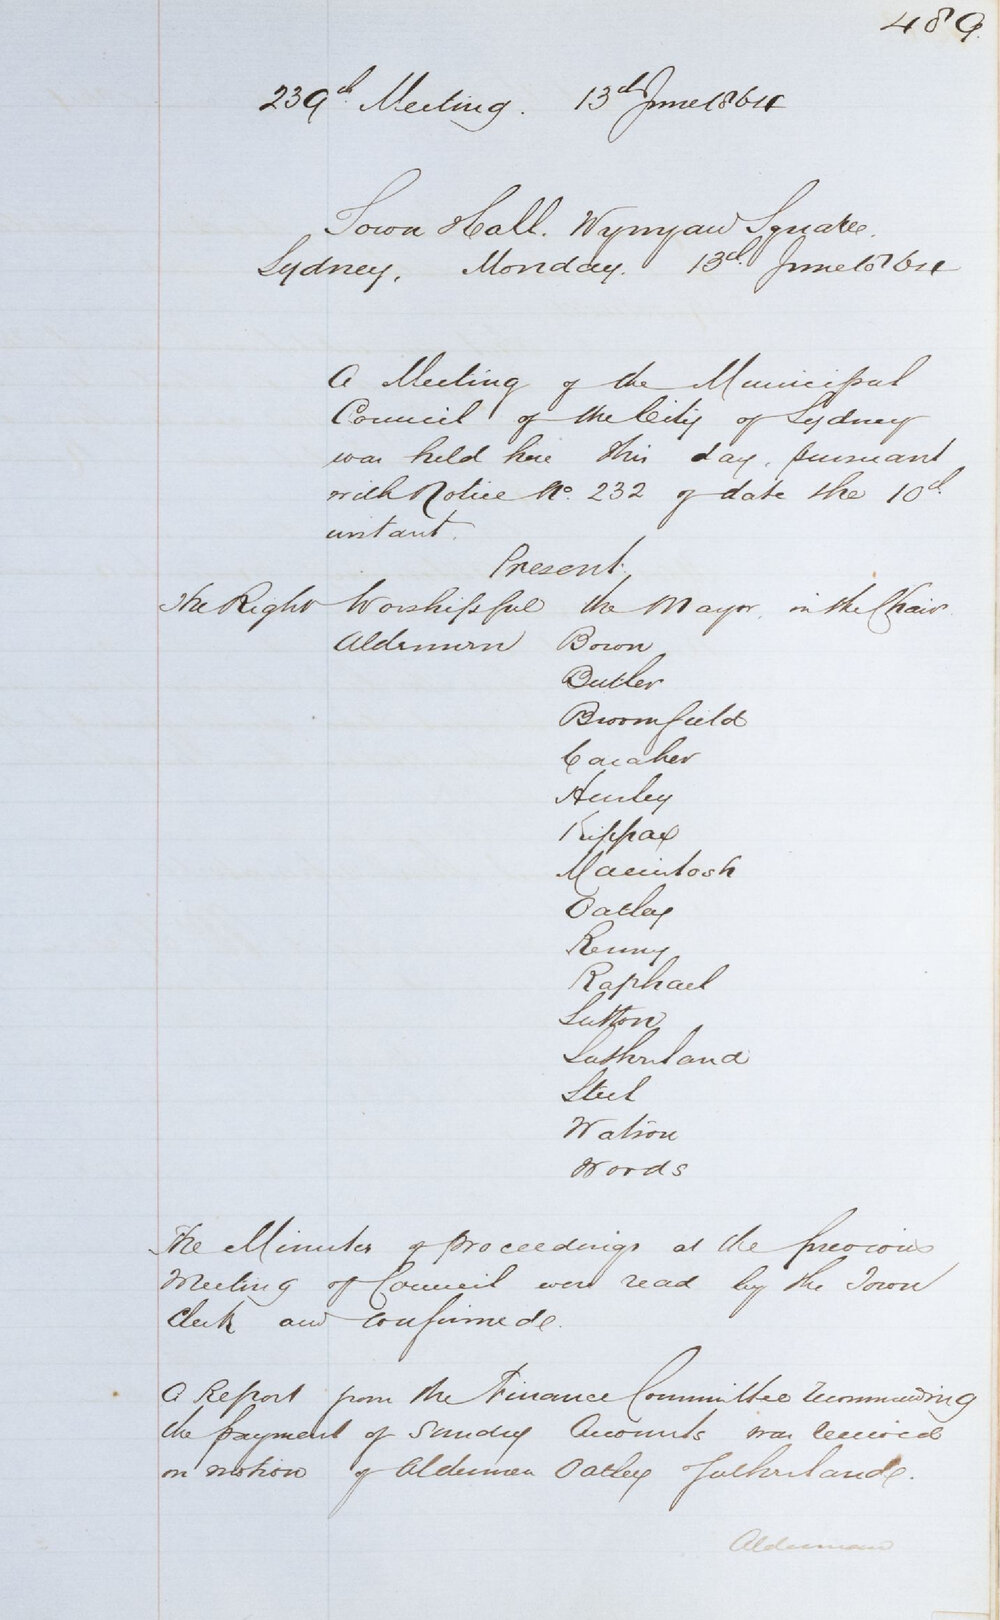 489
239th Meeting. 13th June 1864
Town Hall. Wynyard Square.
Sydney, Monday. 13th June 1864
A Meeting of the Municipal
Council of the City of Sydney
was held here this day, pursuant
with Notice No. 232 of date the 10th
instant.
Present,
The Right Worshipful the Mayor, in the Chair.
Aldermen Bown
Butler
Broomfield
Caraher
Hurley
Kippax
Macintosh
Oatley
Renny
Raphael
Sutton
Sutherland
Steel
Watson
Woods
The Minutes of proceedings at the previous
Meeting of Council were read by the Town
Clerk and confirmed.
A Report from the Finance Committee recommending
the payment of Sundry Accounts was received
on motion of Aldermen Oatley Sutherland.
Alderman